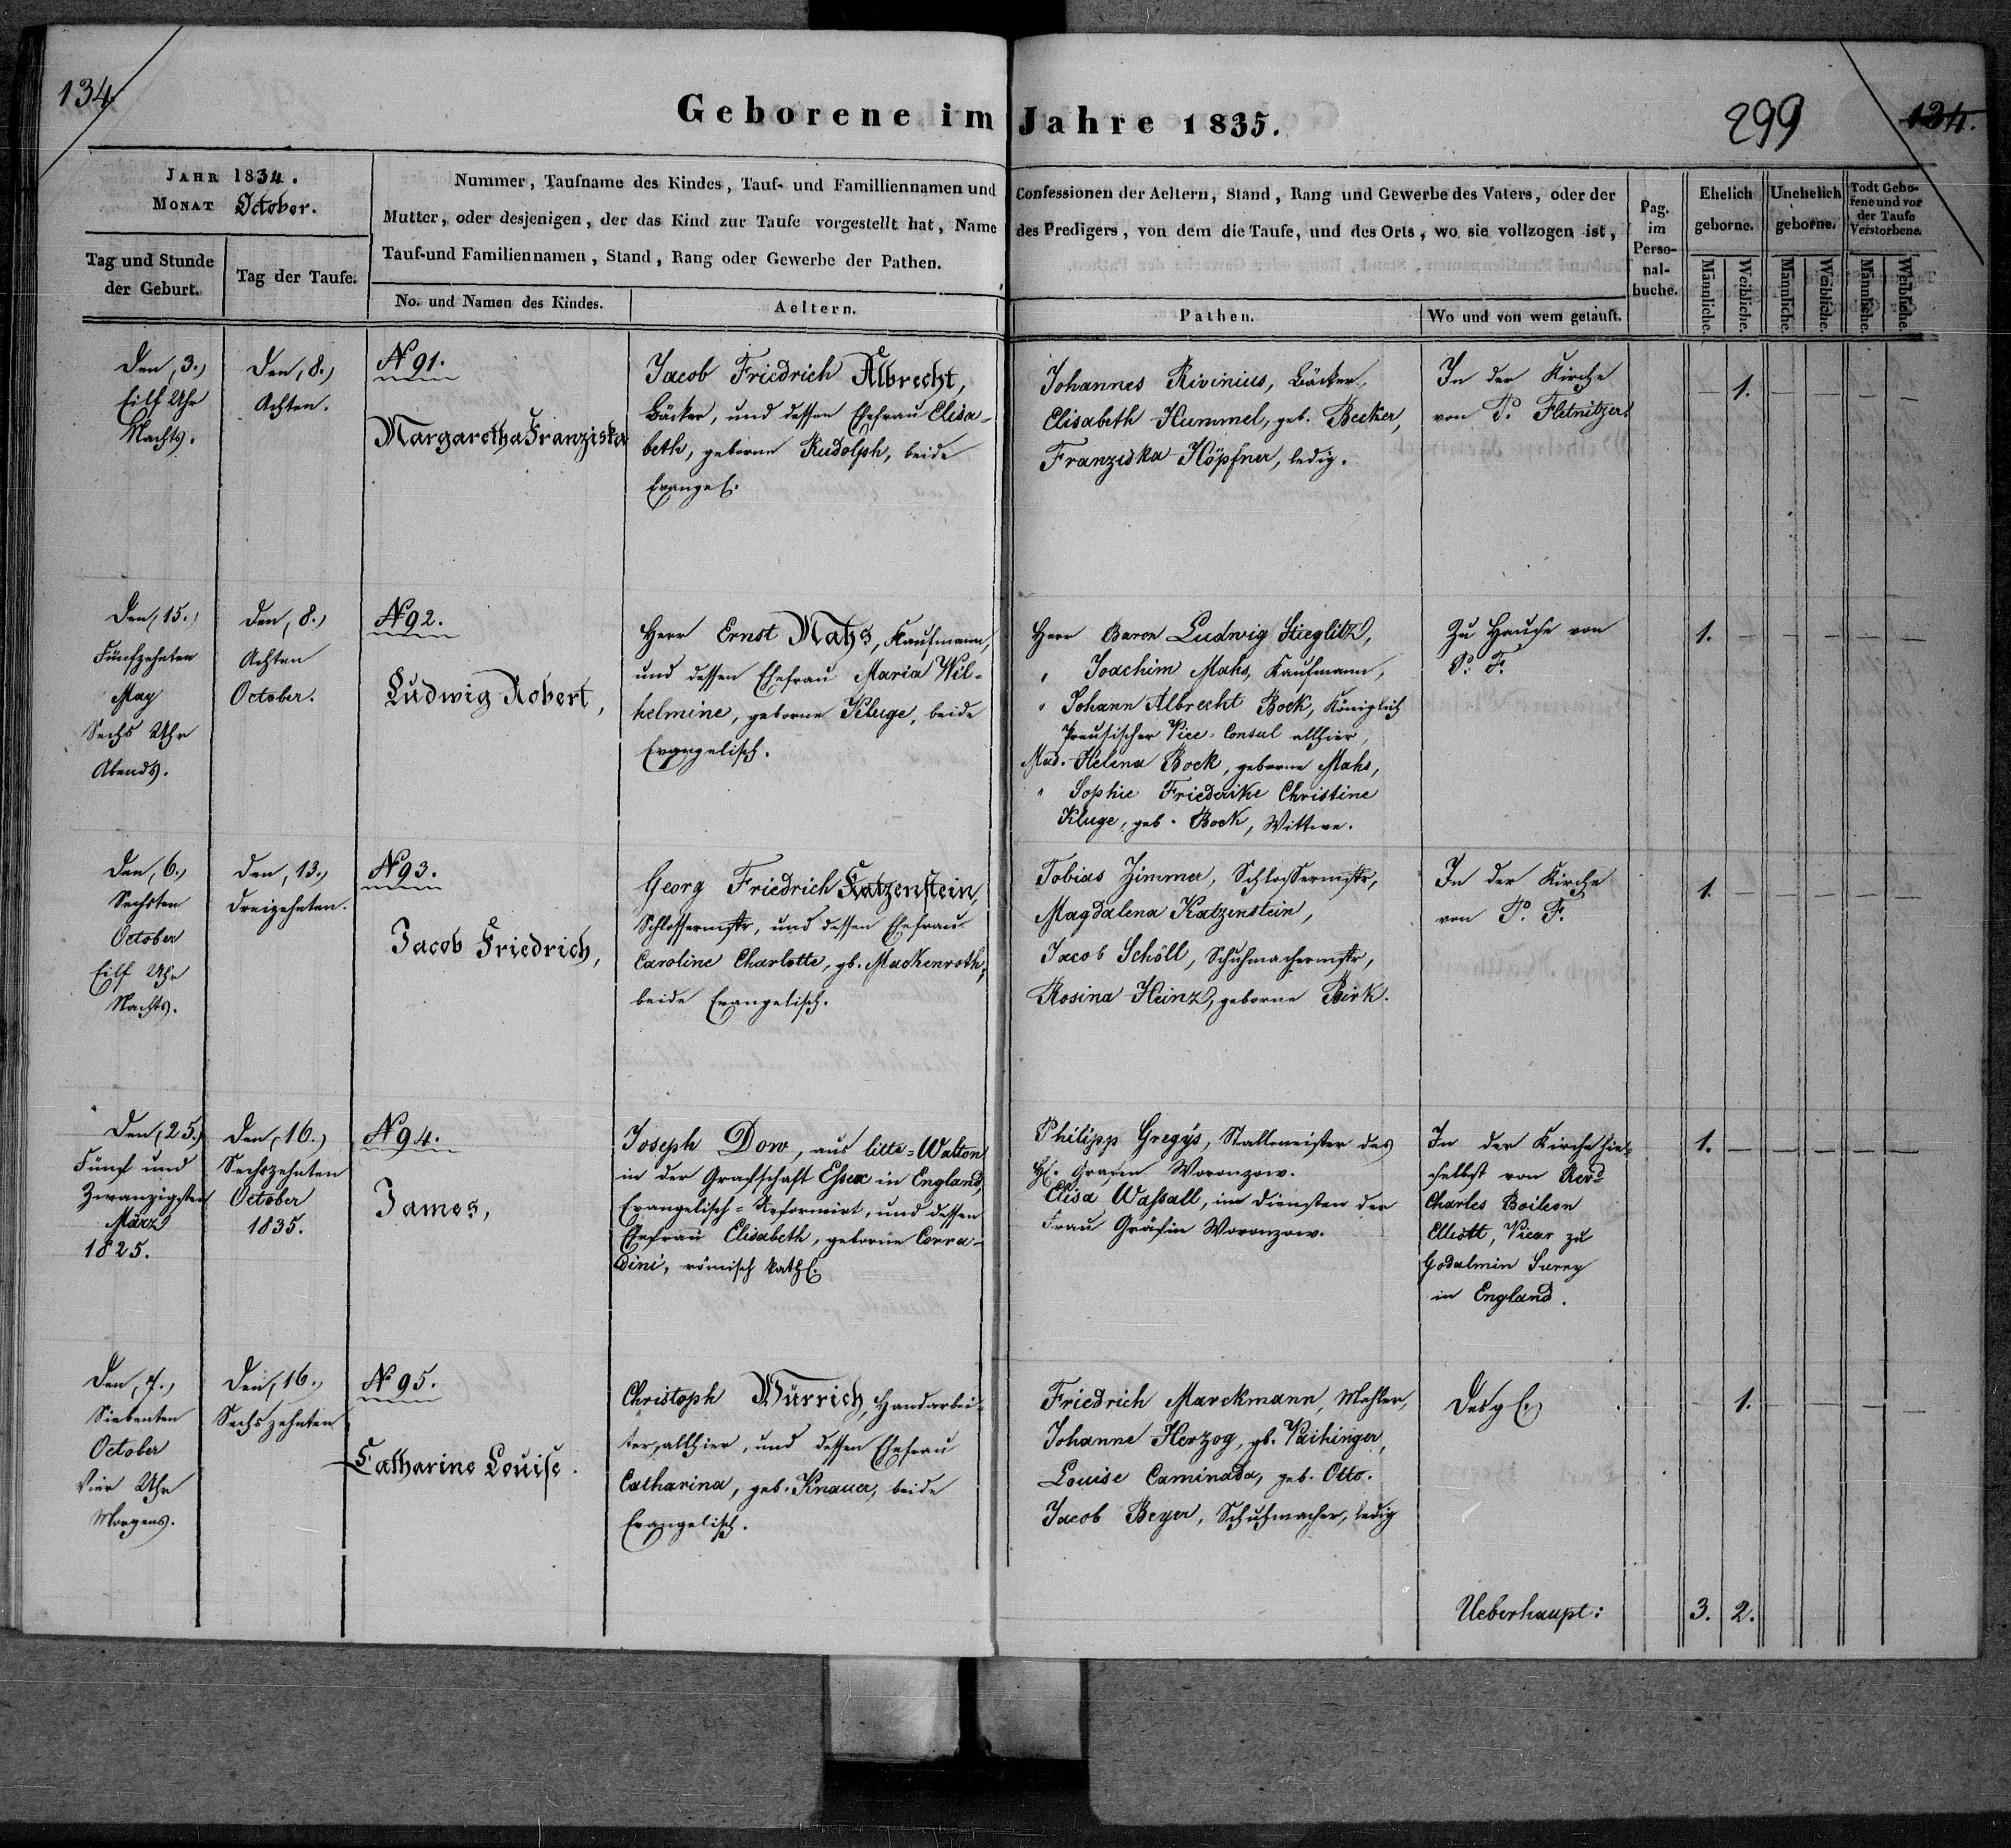 134.
Geborene im Jahre 1835.
299
134.
JAHR 1834.
MONAT October.
Tag und Stunde
der Geburt.
Tag der Taufe.
Nummer, Taufname des Kindes, Tauf- und Familliennamen und Confessionen der Aeltern, Stand, Rang und Gewerbe des Vaters, oder der
Mutter, oder desjenigen, der das Kind zur Taufe vorgestellt hat, Name des Predigers, von dem die Taufe, und des Orts, wo sie vollzogen ist,
Tauf-und Familiennamen, Stand, Rang oder Gewerbe der Pathen.
No. und Namen des Kindes.
Aeltern.
Pathen.
Wo und von wem getauft.
Pag.
im
Perso-
nal-
buche.
Ehelich
geborne.
Unehelich
geborne.
Todt Gebo-
rene und vor
der Taufe
Verstorbene.
Männliche.
Weibliche.
Männliche.
Weibliche.
Männliche.
Weibliche.
Den, 3.,
Eilf Uhr
Nachts.
Den, 8.,
Achten.
N 91.
Margaretha Franziska
Jacob Friedrich Albrecht,
Bäcker, und dessen Ehefrau Elisa-
beth, geborne Rudolph, beide
Evangel.
Johannes Rivinius, Bäcker,
Elisabeth Hummel, geb. Becker,
Franziska Höpfner, ledig.
In der Kirche
von P. Fletnitzer.
— 1. — — — —
Den, 15.,
Fünfzehnten
May
Sechs Uhr
Abends.
Den, 8.,
Achten
October.
N 92.
Ludwig Robert,
Herr Ernst Mahs, Kaufmann,
und dessen Ehefrau Maria Wil-
helmine, geborne Kluge, beide
Evangelisch.
Herr Baron Ludwig Stieglitz,
" Joachim Mahs, Kaufmann,
" Johann Albrecht Bock, Königlich
Preusischer Vice-Consul allhier,
Mad. Helena Bock, geborne Mahs,
" Sophie Friederike Christine
Kluge, geb. Bock, Wittwe.
Zu Hause von
P. F.
1. — — — — —
Den, 6.,
Sechsten
October
Eilf Uhr
Nachts.
Den, 13.,
Dreizehnten.
N 93.
Jacob Friedrich,
Georg Friedrich Katzenstein,
Schlossermstr, und dessen Ehefrau
Caroline Charlotte, gb. Mackenroth,
beide Evangelisch.
Tobias Zimmer, Schlossermstr,
Magdalena Katzenstein,
Jacob Schöll, Schuhmachermstr,
Rosina Heinz, geborne Birk.
In der Kirche
von P. F.
1. — — — — —
Den, 25.,
Fünf und
Zwanzigsten
März
1825.
Den, 16.,
Sechszehnten
October
1835.
N 94.
James,
Joseph Dow, aus litte-Walton
in der Grafschaft Essex in England,
Evangelisch-Reformirt, und dessen
Ehefrau Elisabeth, geborne Corra-
dini, römisch kathl.
Philipp Gregys, Stallmeister des
H. Grafen Woronzow.
Elisa Wassall, im Diensten der
Frau Gräfin Woronzow.
In der Kirche hie-
selbst von Revd
Charles Boileon
Elliott, Vicar zu
Godalmin Surry
in England.
1. — — — — —
Den, 7.,
Siebenten
October
Vier Uhr
Morgens.
Den, 16.,
Sechszehnten
N 95.
Catharine Louise.
Christoph Würrich, Handarbei-
ter, allhier, und dessen Ehefrau
Catharina, geb. Knauer, beide
Evangelisch.
Friedrich Marckmann, Mahler,
Johanne Herzog, gb. Vaihinger,
Louise Caminada, geb. Otto.
Jacob Beyer, Schuhmacher, ledig
Desgl.
— 1. — — — —
Ueberhaupt: 3. 2.